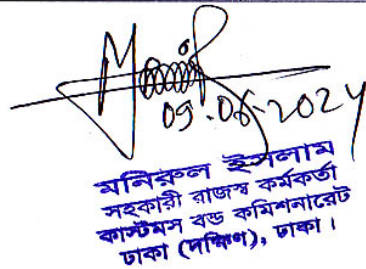 09.06-2024
মনিরুল ইসলাম
সহকারী রাজস্ব কর্মকর্তা
কাস্টমস বন্ড কমিশনারেট
ঢাকা (দক্ষিণ), ঢাকা।